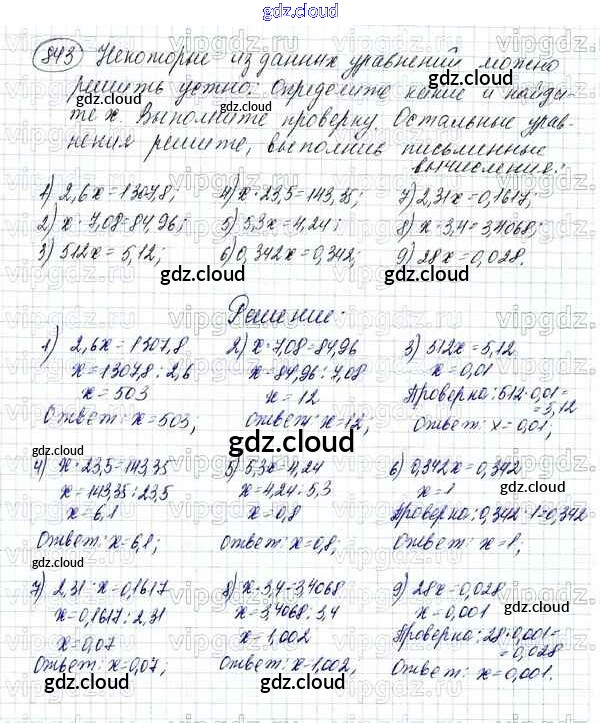 gdz.cloud
843 Некоторые из данных уравнений можно
решить устно. Определите какие и найди-
те x. Выполните проверку. Остальные урав-
нения решите, выполнив письменные
вычисления:
1) 2,6x=1307,8; 4) x·23,5=143,35; 7) 2,31x=0,1617;
2) x·7,08=84,96; 5) 5,3x=4,24; 8) x·3,4=3,4068;
3) 512x=5,12; 6) 0,342x=0,342; 9) 28x=0,028.
Решение:
1) 2,6x=1307,8 2) x·7,08=84,96 3) 512x=5,12
x=1307,8:2,6 x=84,96:7,08 x=0,01
x=503 x=12 Проверка: 512·0,01=
=5,12
Ответ: x=503; Ответ: x=12; Ответ: x=0,01;
4) x·23,5=143,35 5) 5,3x=4,24 6) 0,342x=0,342
x=143,35:23,5 x=4,24:5,3 x=1
x=6,1 x=0,8 Проверка: 0,342·1=0,342
Ответ: x=6,1; Ответ: x=0,8; Ответ: x=1;
7) 2,31·x=0,1617 8) x·3,4=3,4068 9) 28x=0,028
x=0,1617:2,31 x=3,4068:3,4 x=0,001
x=0,07 x=1,002 Проверка: 28·0,001=
=0,028
Ответ: x=0,07; Ответ: x=1,002; Ответ: x=0,001.